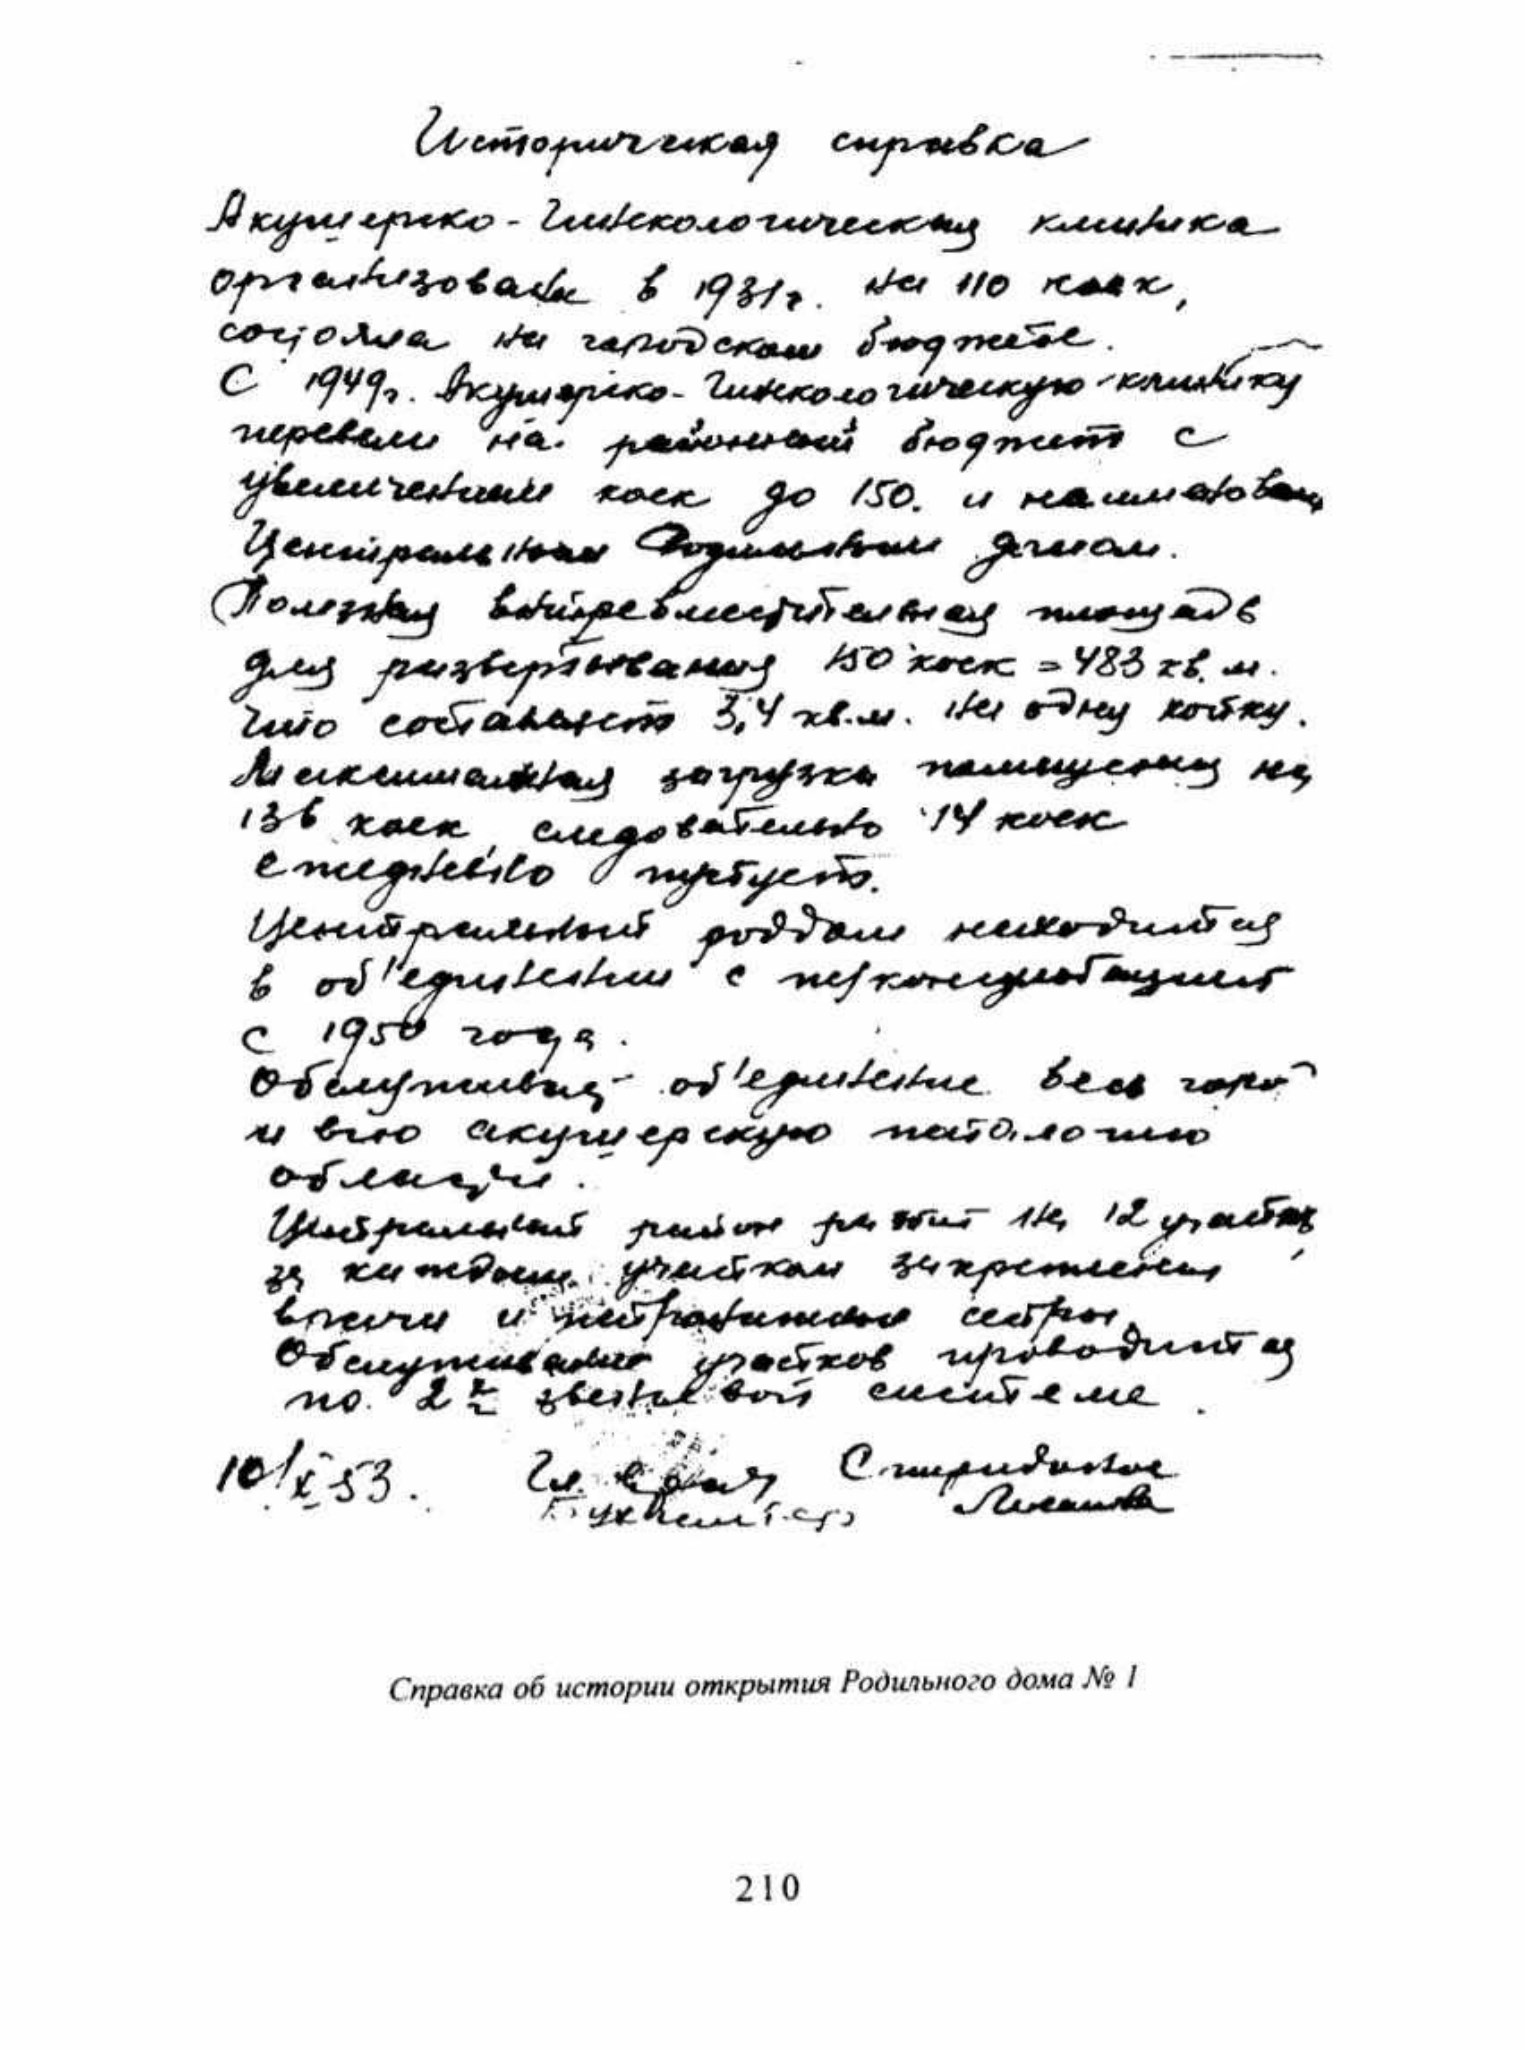 Историческая справка
Акушерско-Гинекологическая клиника
организована в 1931г. на 110 коек,
состояла на городском бюджете.
С 1949г. Акушерско-Гинекологическую клинику
перевели на районный бюджет с
увеличением коек до 150. и наименован
Центральным Родильным домом.
Полезная
площадь
для развертывания 150 коек = 483 кв. м.
что составляет 3,4 кв.м. на одну койку.
Максимальная загрузка помещения на
136 коек, следовательно 14 коек
ежедневно пустует.
Центральный роддом находится
в об'единении с ж/консультацией
с 1950 года.
Обслуживает об'единение весь город
и всю акушерскую патологию
области.
Центральный район разбит на 12 участков,
за каждым участком закреплены
врачи и патронажные сестры.
Обслуживание участков проводится
по 2х звеньевой системе.
10/X 53. Гл. врач Спиридонов
Бухгалтер
Справка об истории открытия Родильного дома № 1
210